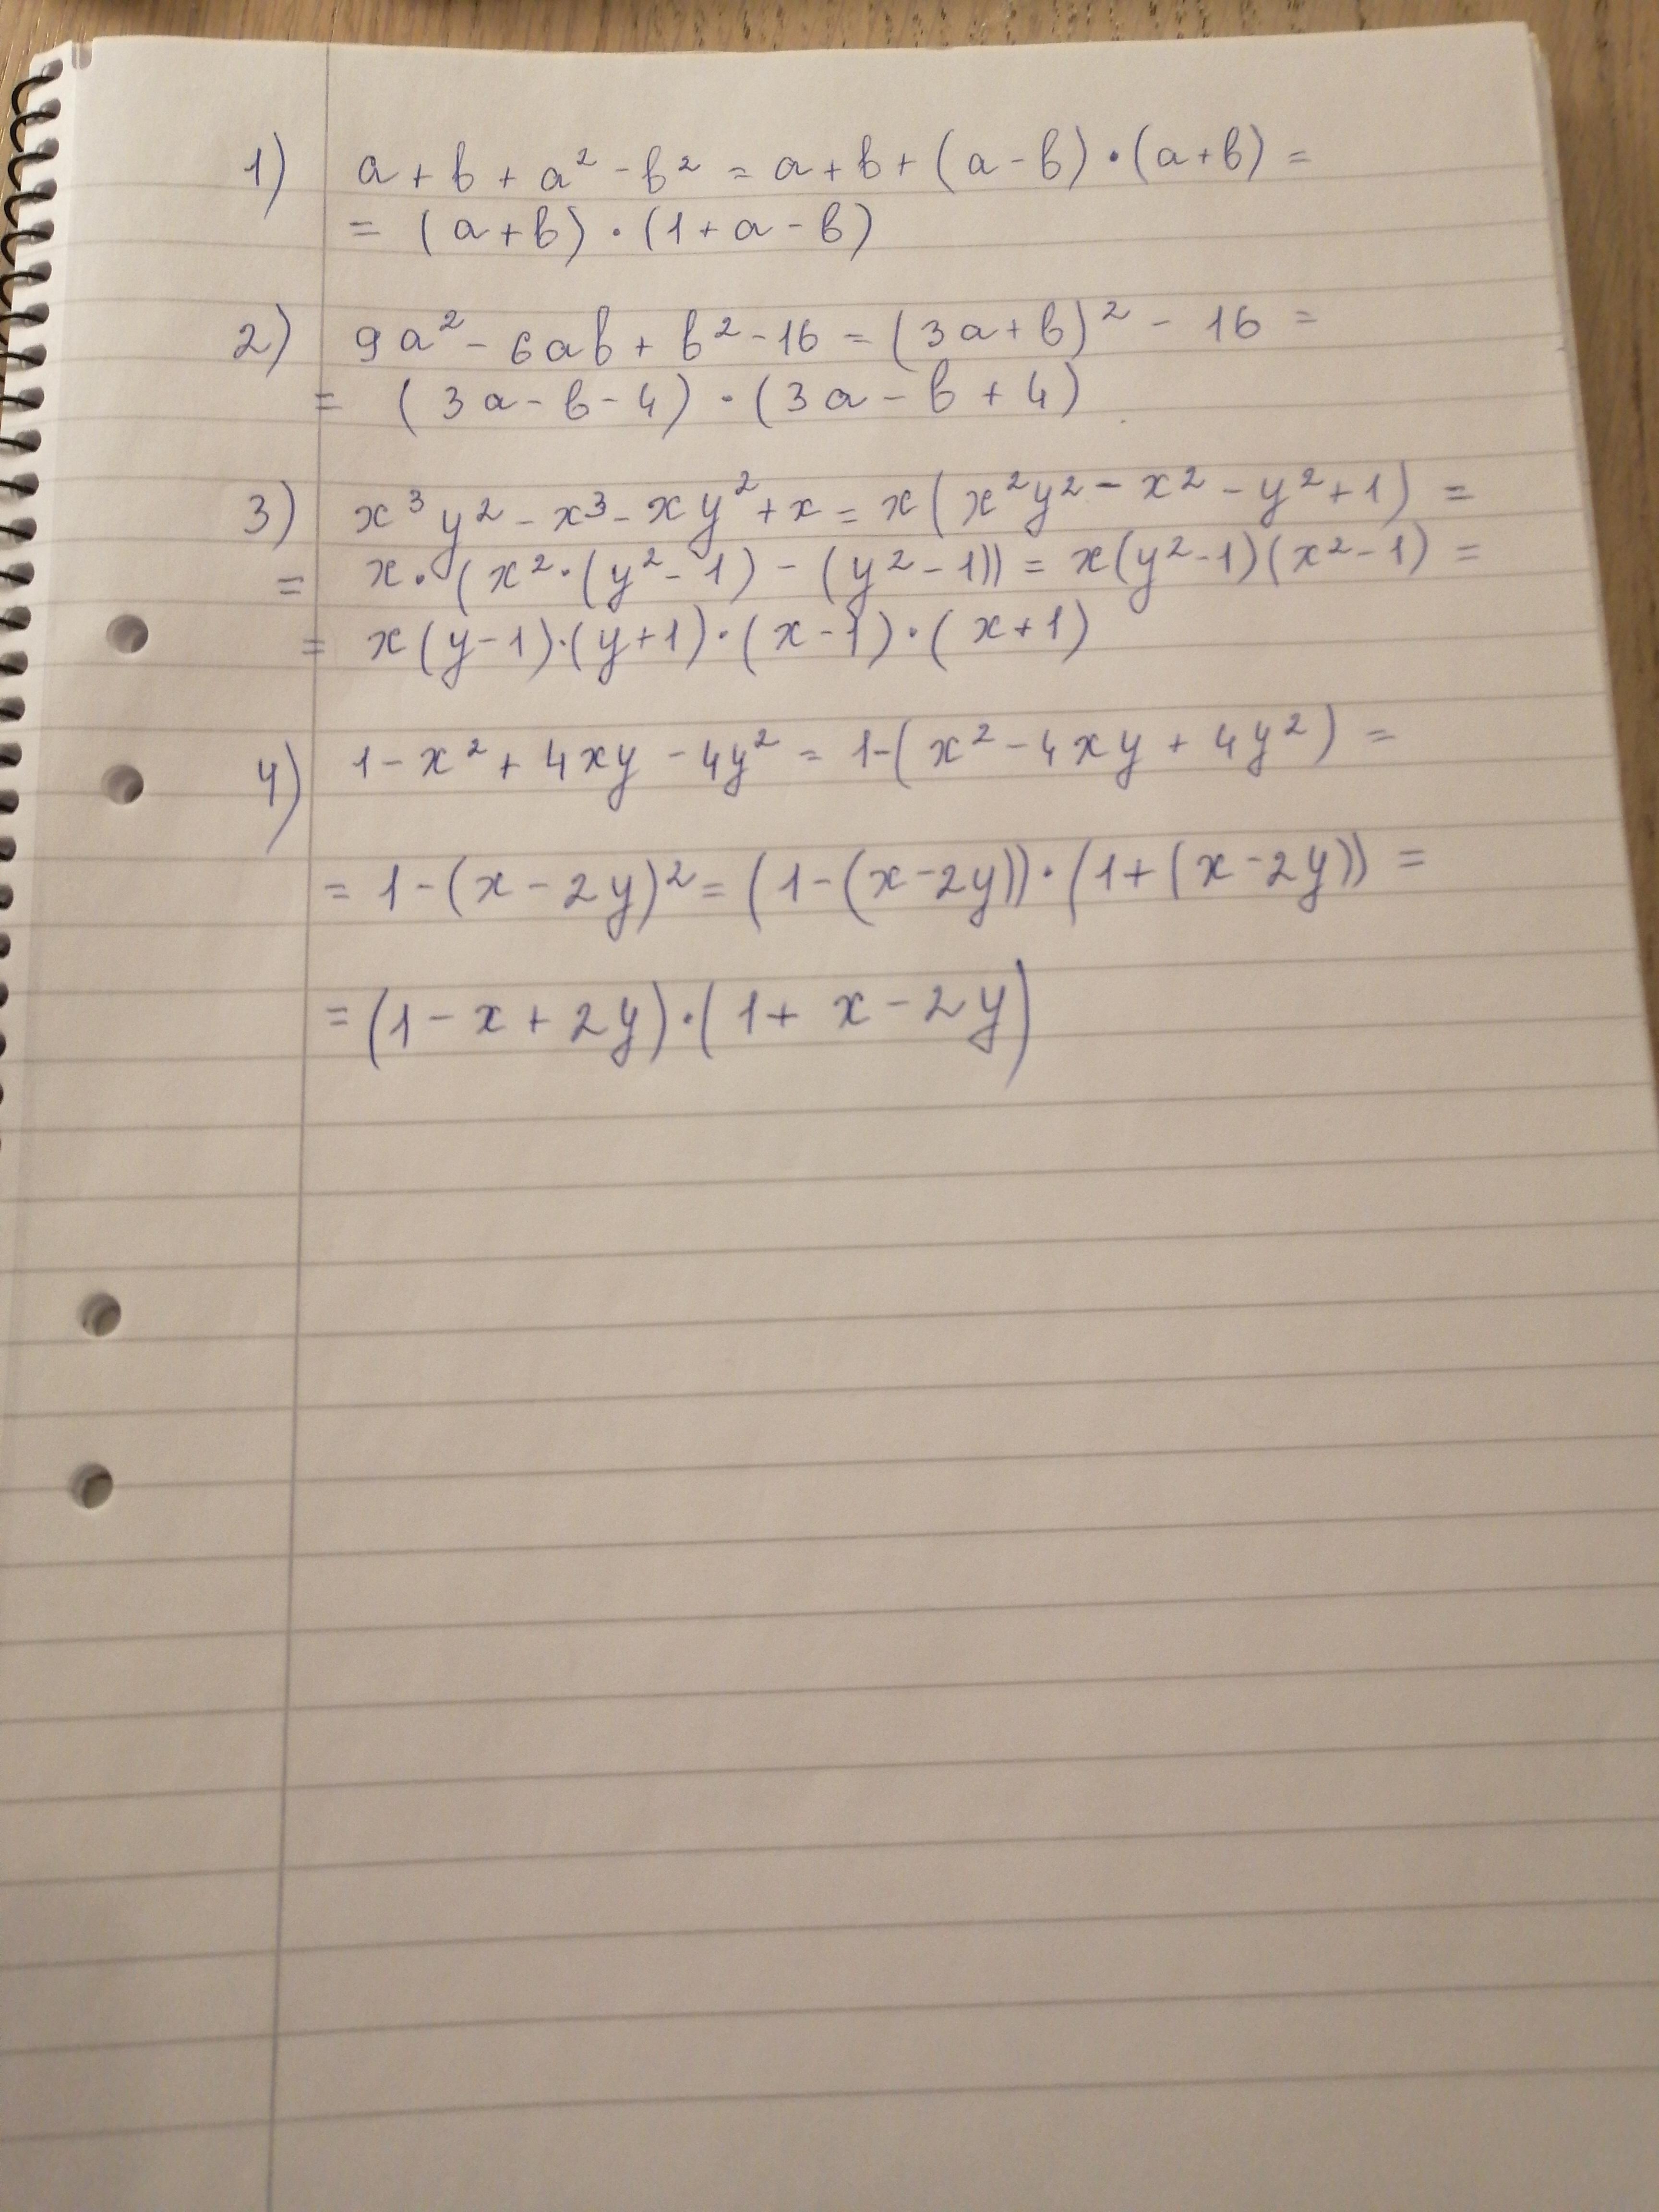 1) a + b + a² - b² = a + b + (a - b) · (a + b) =
= (a + b) · (1 + a - b)
2) 9a² - 6ab + b² - 16 = (3a + b)² - 16 =
= (3a - b - 4) · (3a - b + 4)
3) x³y² - x³ - xy² + x = x(x²y² - x² - y² + 1) =
= x · (x² · (y² - 1) - (y² - 1)) = x(y² - 1)(x² - 1) =
= x(y - 1) · (y + 1) · (x - 1) · (x + 1)
4) 1 - x² + 4xy - 4y² = 1 - (x² - 4xy + 4y²) =
= 1 - (x - 2y)² = (1 - (x - 2y)) · (1 + (x - 2y)) =
= (1 - x + 2y) · (1 + x - 2y)